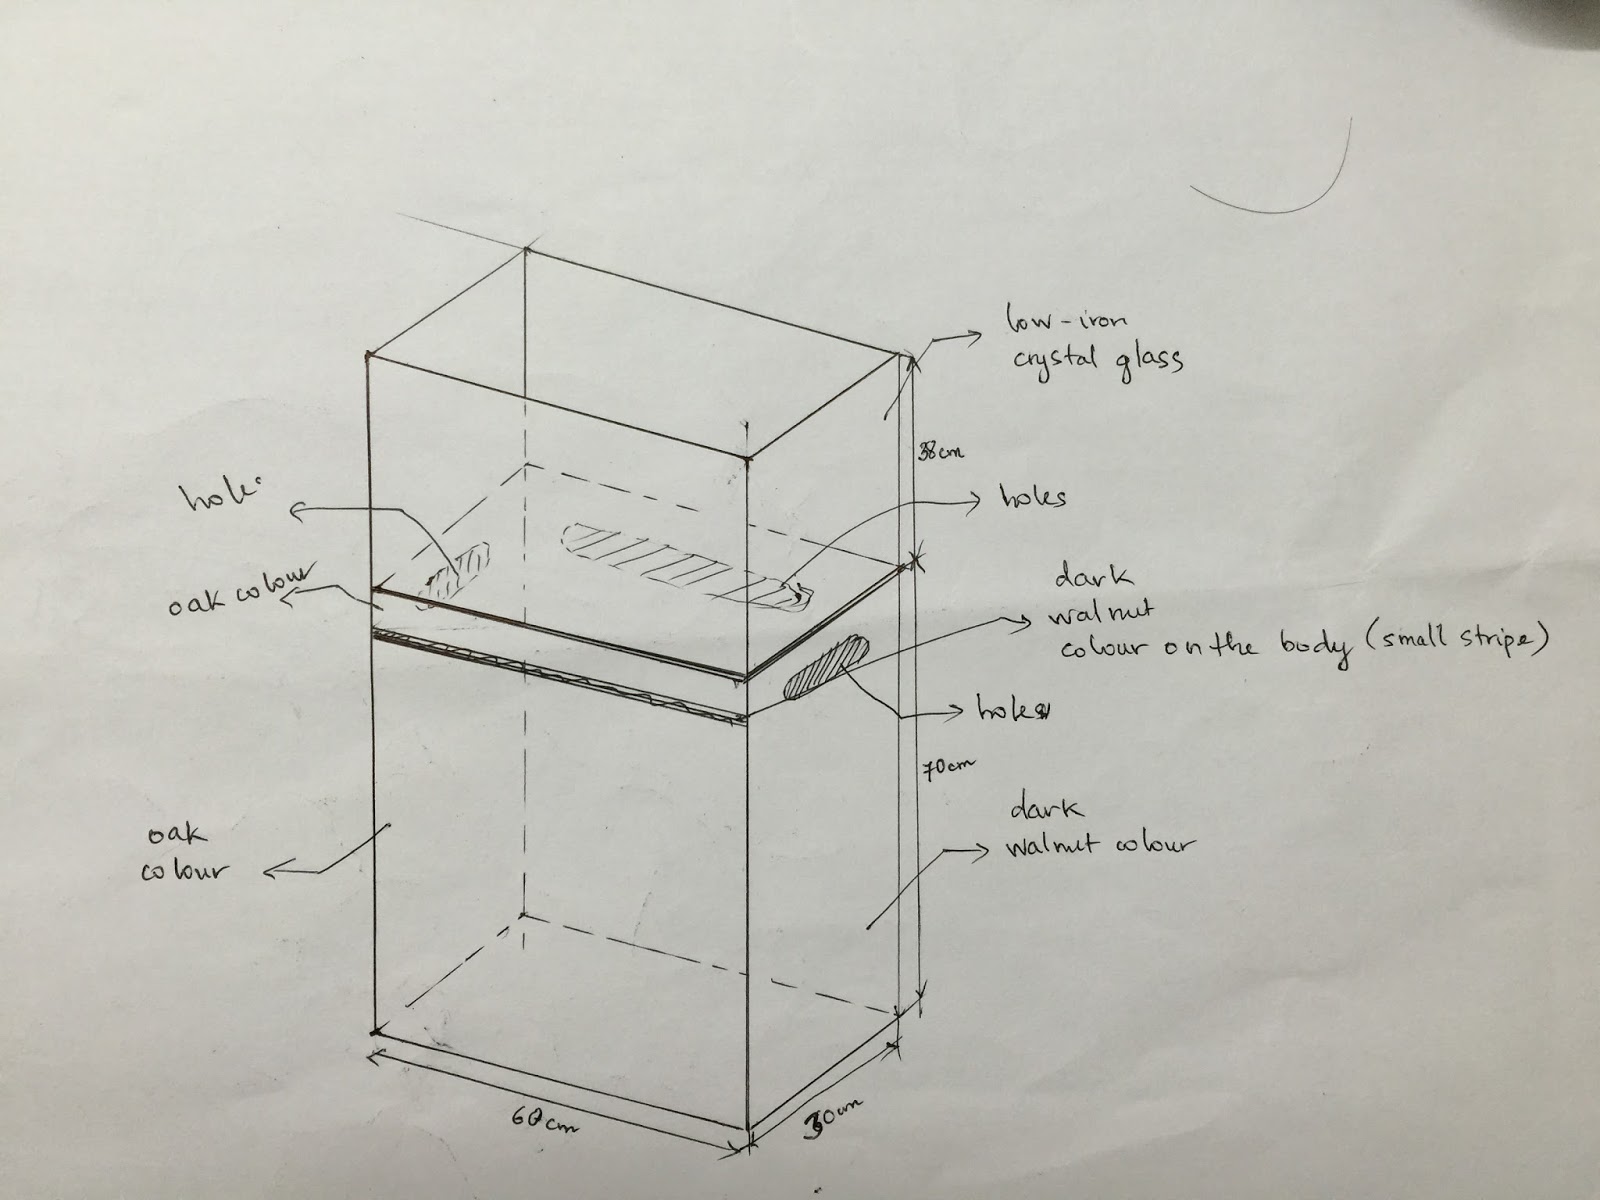 low-iron
crystal glass
38cm
hole
holes
oak colour
dark
walnut
colour on the body (small stripe)
holes
70cm
oak
colour
dark
walnut colour
60cm
30cm